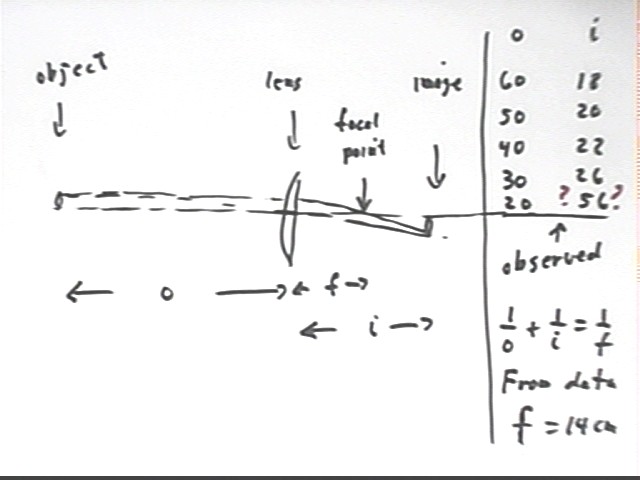 object
lens
focal
point
image
o
f
i
o i
60 18
50 20
40 22
30 26
20 ? 56?
observed
1/o + 1/i = 1/f
From data
f = 14 cm